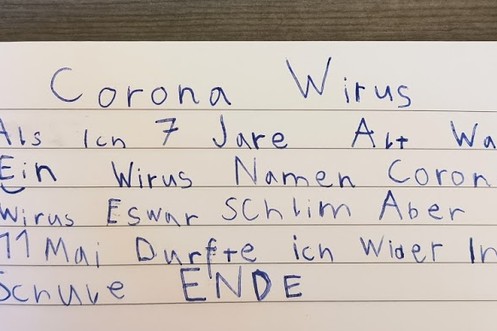 Corona Wirus
Als Ich 7 Jare Alt Wa
Ein Wirus Namen Coron
Wirus Eswar Schlim Aber
11 Mai Durfte ich Wider In
Schule ENDE